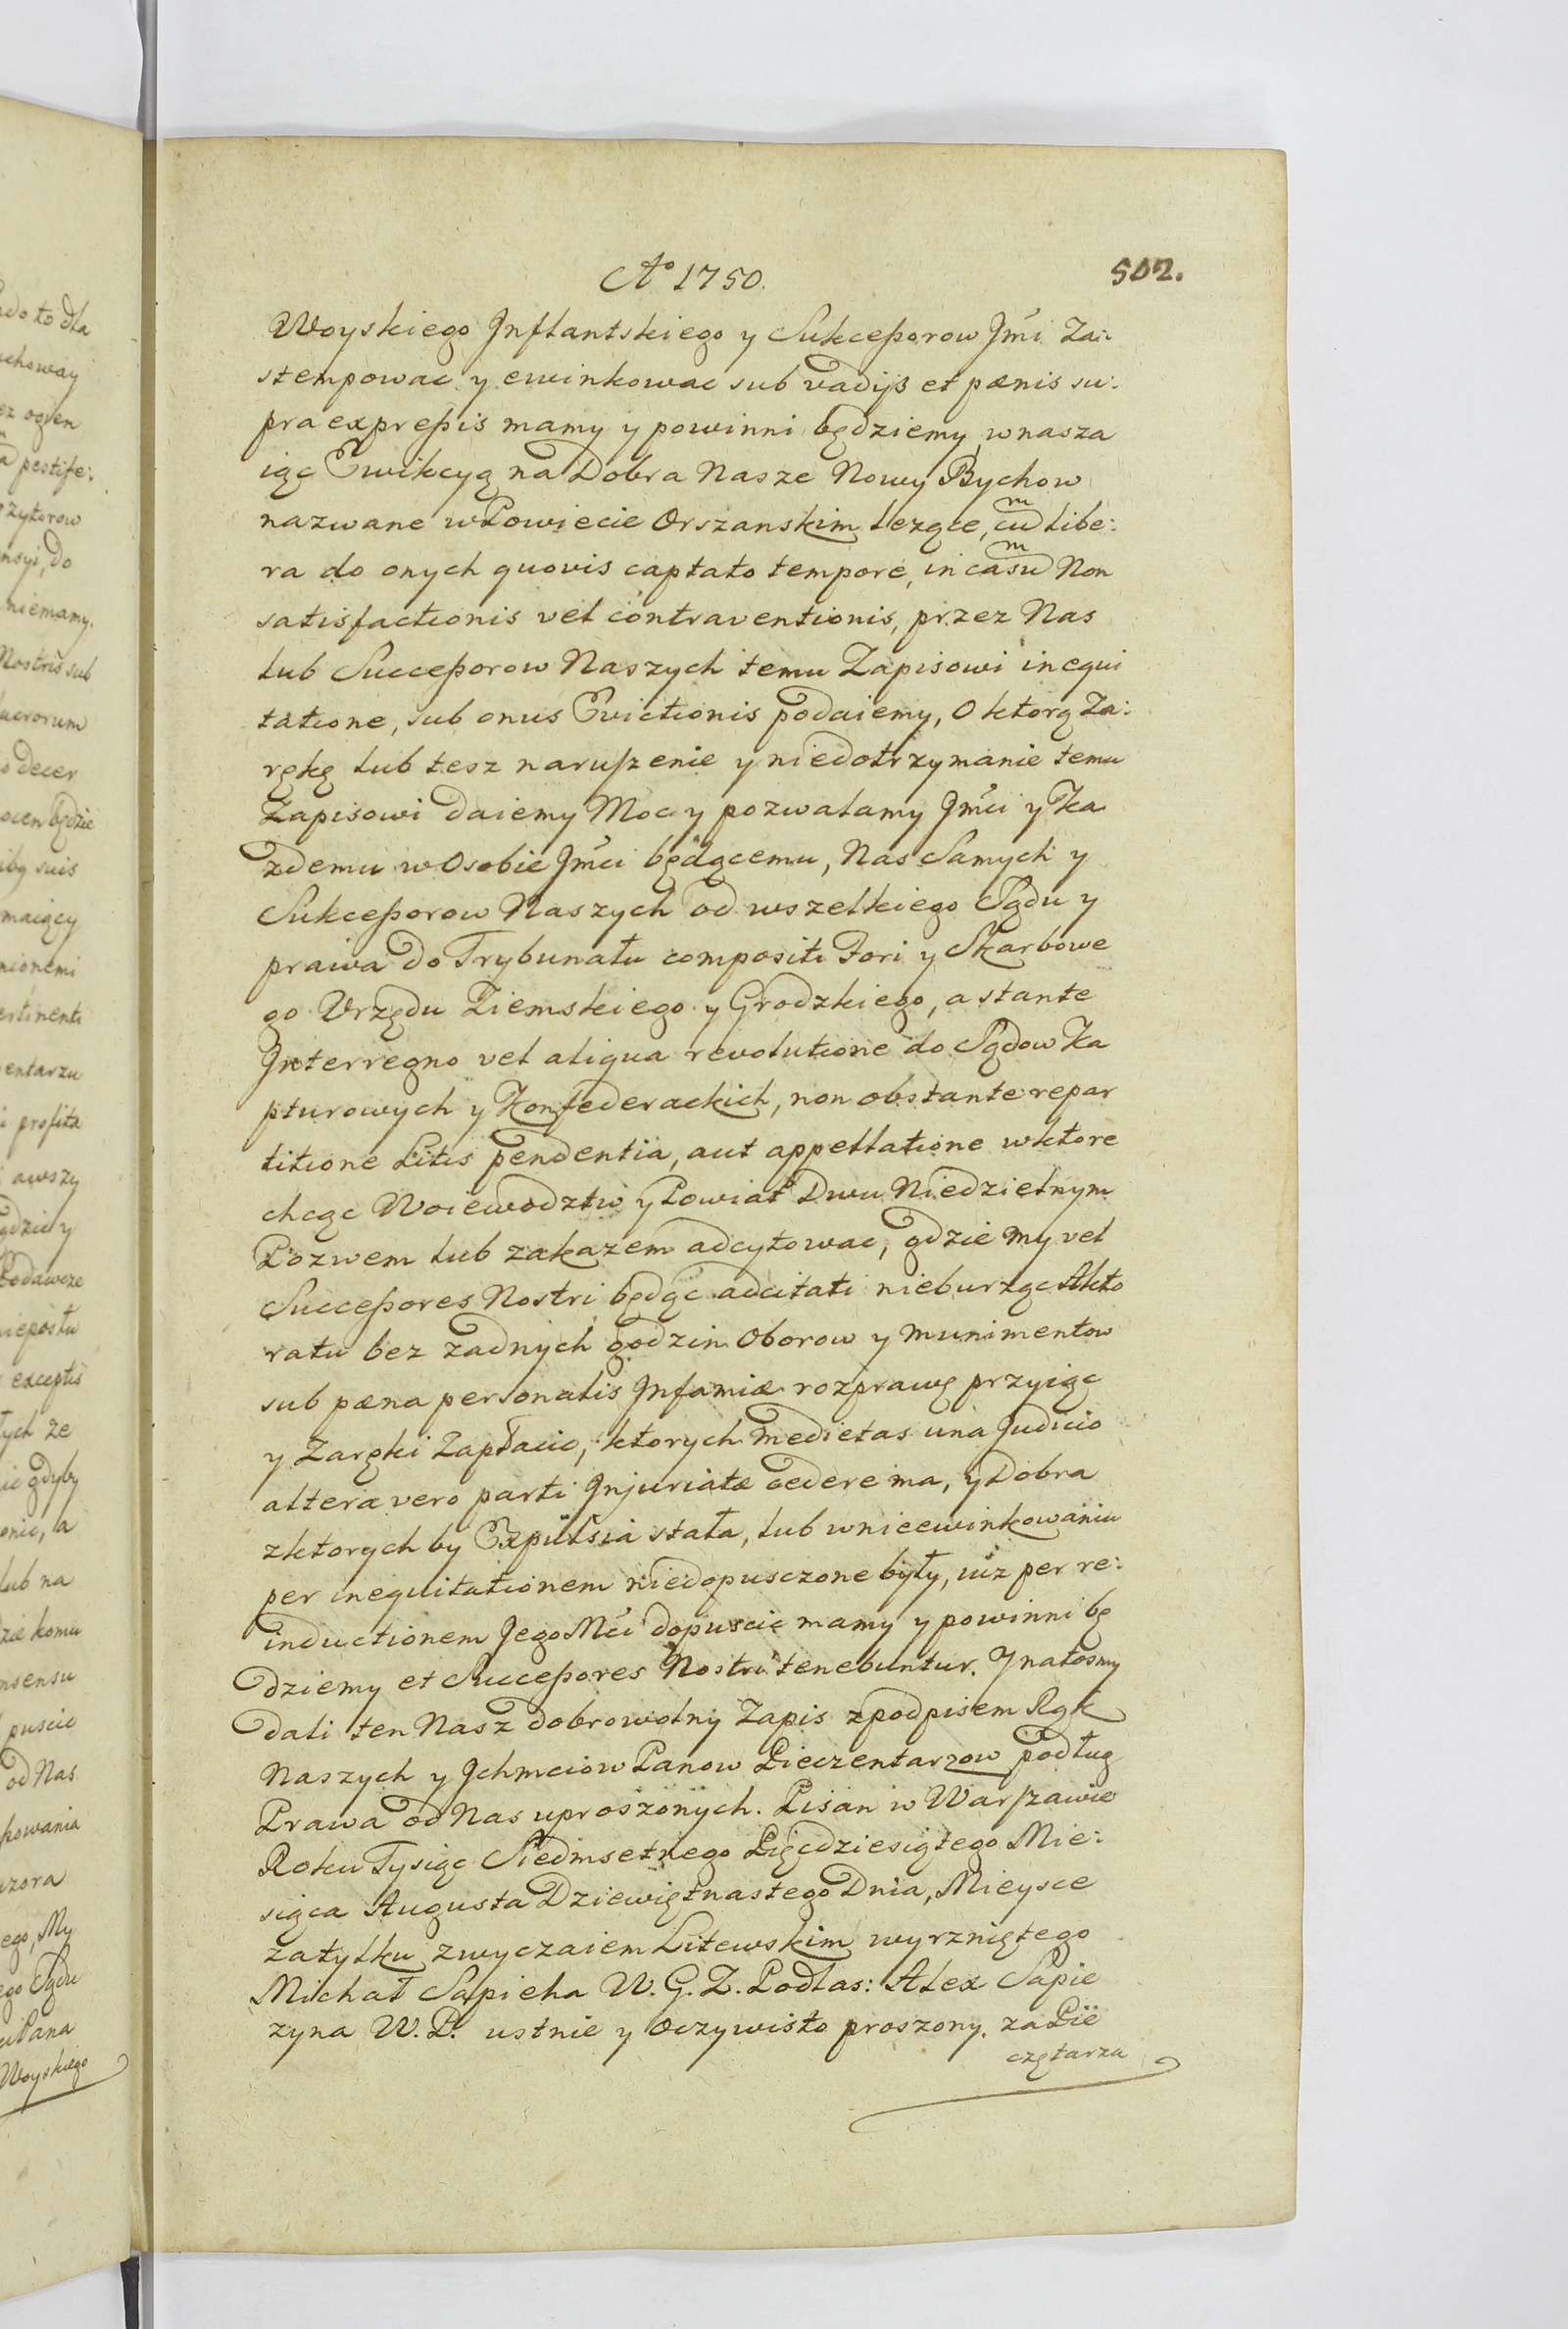 Ao 1750.
502.
Woyskiego Jnflantskiego y Sukceßorow Jmi Za:
stempowac y ewinkowac sub vadijs et pænis su:
pra expreßis mamy y powinni będziemy wnasza
iąc Ewikcyą na Dobra Nasze Nowy Bychow
nazwane wPowiecie Orszanskim lezące, cum libe:
ra do onych quovis captato tempore, in casum Non
satisfactionis vel contraventionis, przez Nas
lub Succeßorow Naszych temu Zapisowi inequi
tatione, sub onus Evictionis podaiemy, O ktorą Za:
rękę lub tesz naruszenie y niedotrzymanie temu
Zapisowi daiemy Moc y pozwalamy Jmci y Ka
zdemu w Osobie Jmci będącemu, Nas Samych y
Sukceßorow Naszych od wszelkiego Sądu y
prawa do Trybunału compositi Fori y Skarbowe
go Vrzędu Ziemskiego y Grodzkiego, a stante
Jnterregno vel aliqua revolutione do Sądow Ka
pturowych y Konfederackich, non obstante repar
titione Litis pendentia, aut appellatione wktore
chcąc Woiewodztw y Powiat Dwu Niedzielnym
Pozwem lub zakazem adcytowac, gdzie my vel
Succeßores Nostri będąc adcitati nieburząc Akto
ratu bez zadnych godzin Oborow y munimentow
sub pæna personalis Jnfamiæ rozprawę przyiąc
y Zaręki Zapłacic, ktorych medietas una Judicio
altera vero parti Jnjuriatæ cedere ma, y Dobra
zktorych by Expulsia stała, lub wnieewinkowaniu
per inequitationem niedopusczone były, iuz per re:
inductionem JegoMci dopuscic mamy y powinni bę
dziemy et Succeßores Nostri tenebuntur. Y natosmy
dali ten Nasz dobrowolny Zapis zpodpisem Rąk
Naszych y Jchmciow Panow Pieczentarzow podług
Prawa od Nas uproszonych. Pisan w Warszawie
Roku Tysiąc Siedmsetnego Pięcdziesiątego Mie:
siąca Augusta Dziewiętnastego Dnia, Mieysce
zatyłku zwyczaiem Litewskim wyrzniętego
Michał Sapieha W. G. Z. Podlas: Alex Sapie
zyna W. P. ustnie y oczywisto proszony. za Pie
czętarza